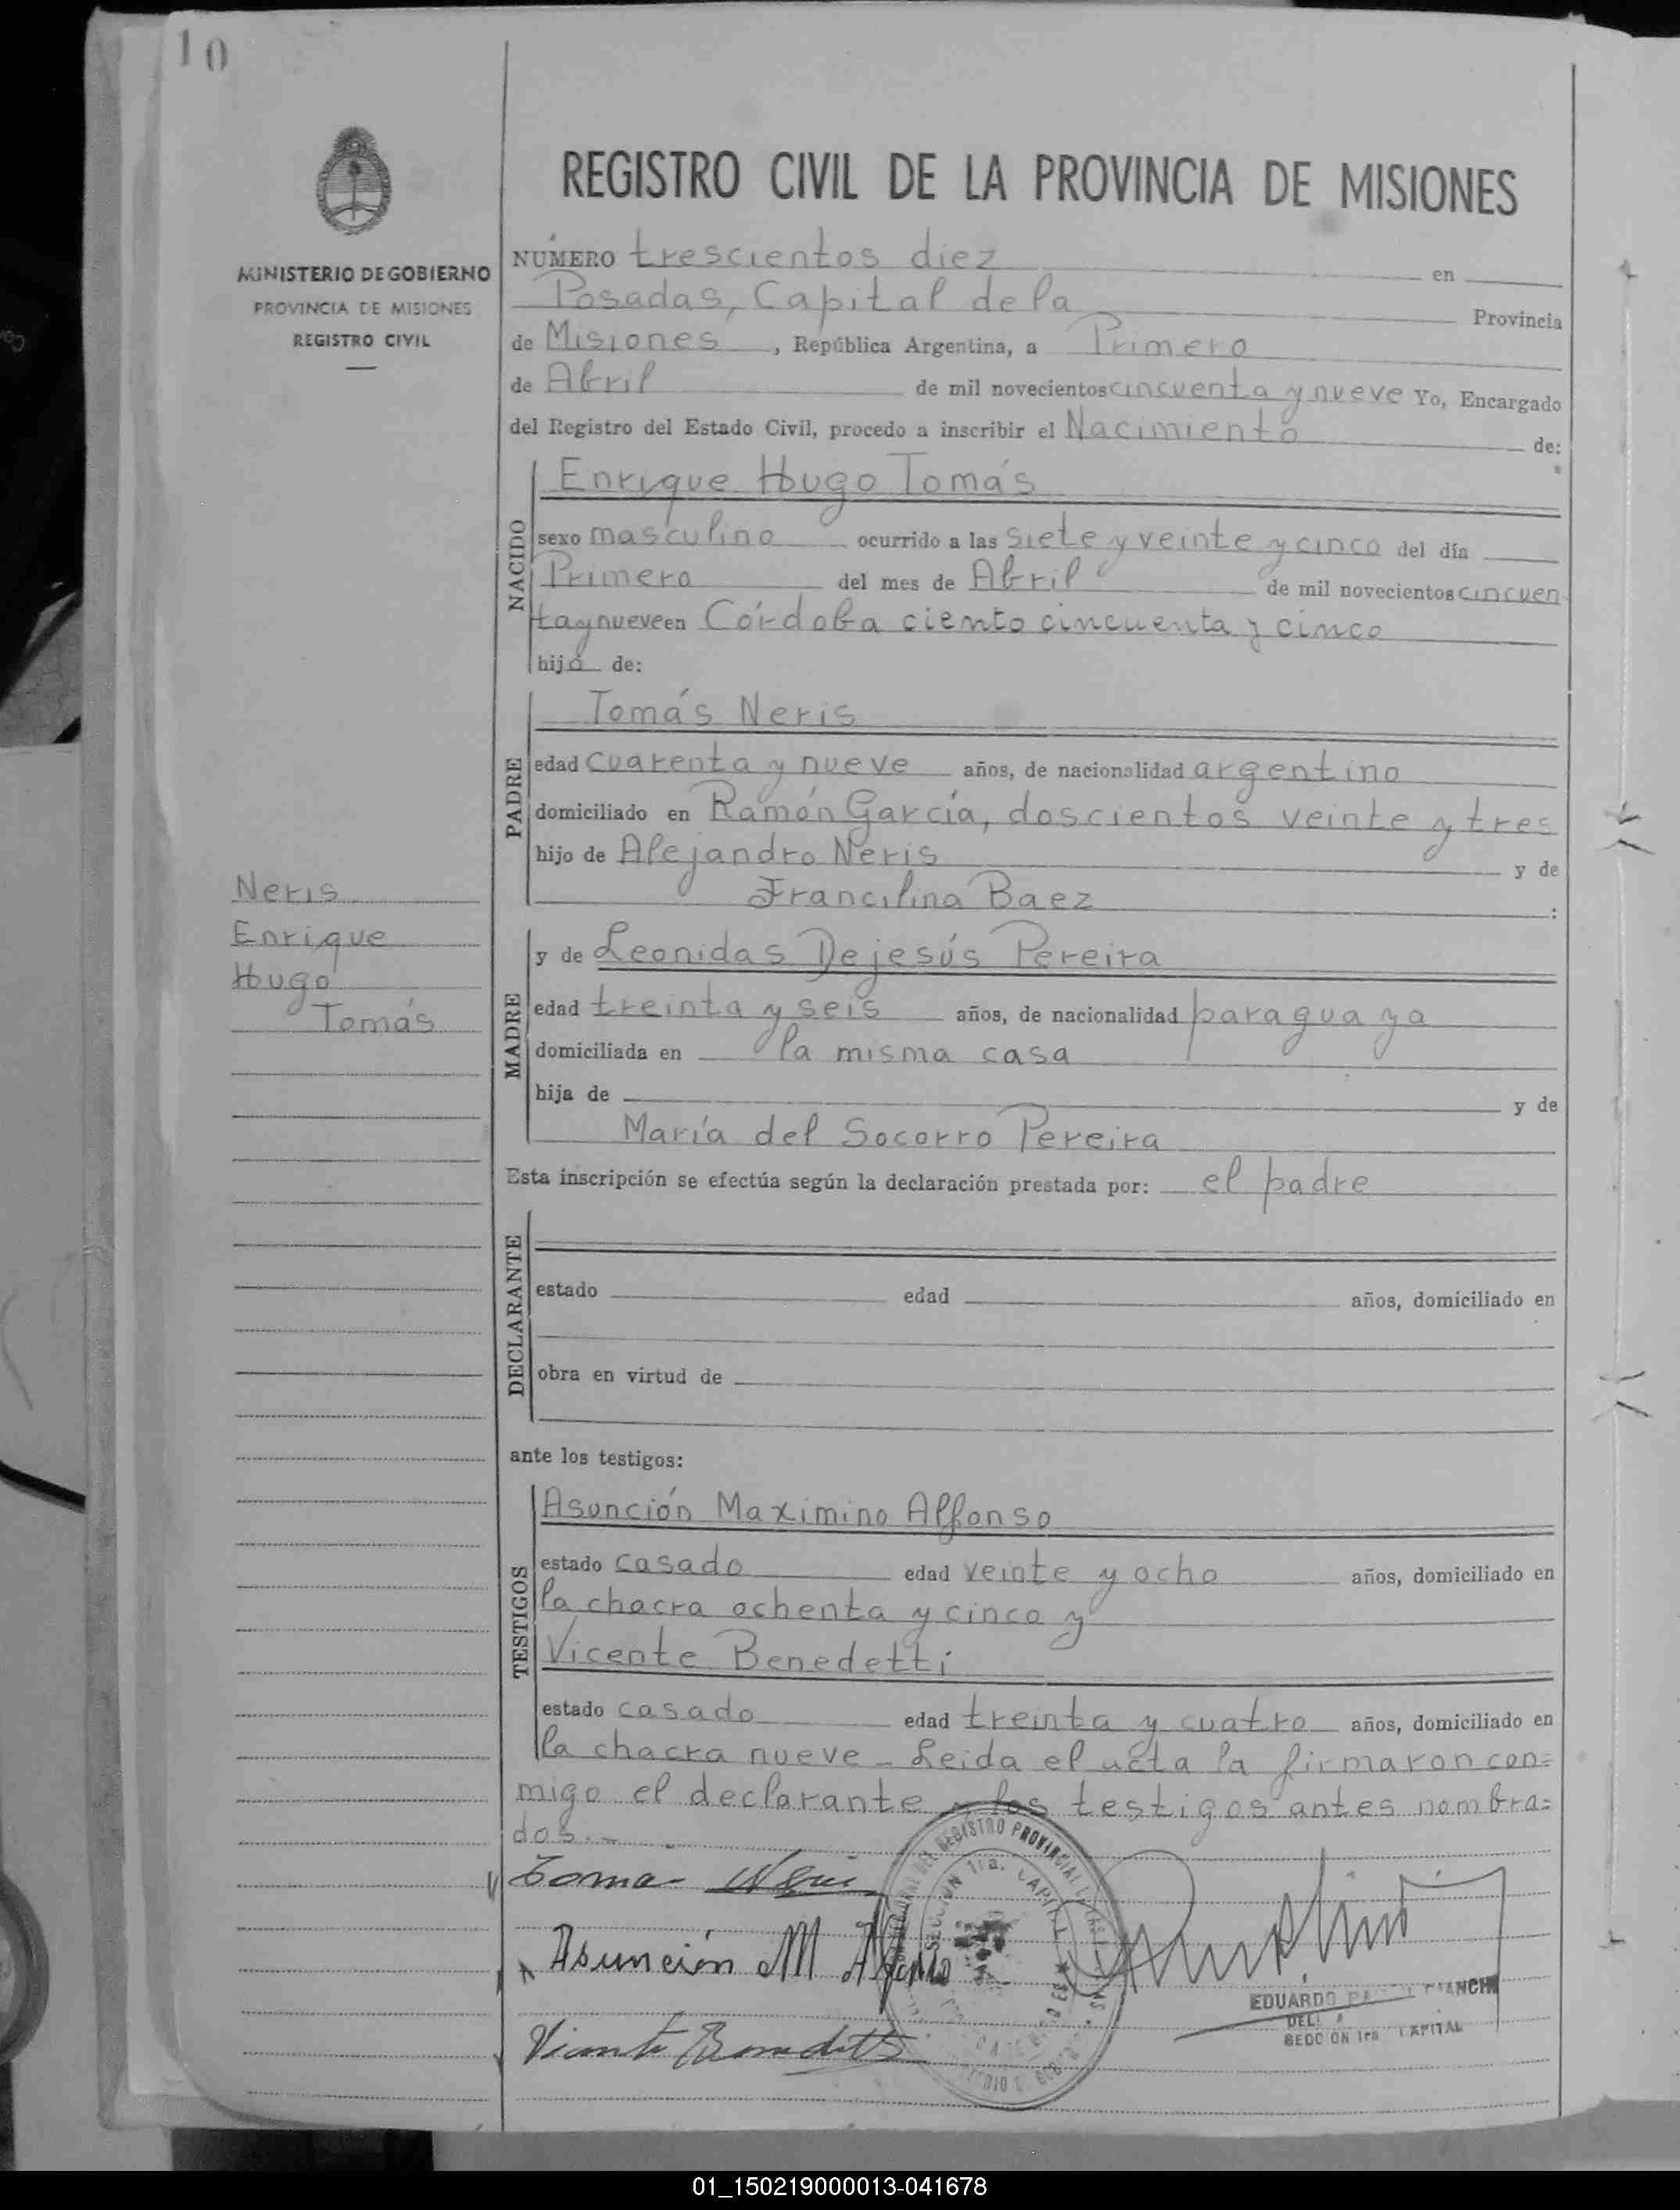 10
MINISTERIO DE GOBIERNO
PROVINCIA DE MISIONES
REGISTRO CIVIL
Neris
Enrique
Hugo
Tomás
REGISTRO CIVIL DE LA PROVINCIA DE MISIONES
NÚMERO trescientos diez en
Posadas, Capital de la Provincia
de Misiones, República Argentina, a Primero
de Abril de mil novecientos cincuenta y nueve Yo, Encargado
del Registro del Estado Civil, procedo a inscribir el Nacimiento de:
NACIDO
Enrique Hugo Tomás
sexo masculino ocurrido a las siete y veinte y cinco del día
Primero del mes de Abril de mil novecientos cincuen
ta y nueve en Córdoba ciento cincuenta y cinco
hijo de:
PADRE
Tomás Neris
edad cuarenta y nueve años, de nacionalidad argentino
domiciliado en Ramón García, doscientos veinte y tres
hijo de Alejandro Neris y de
Francilina Baez :
MADRE
y de Leonidas Dejesús Pereira
edad treinta y seis años, de nacionalidad paraguaya
domiciliada en la misma casa
hija de y de
María del Socorro Pereira
Esta inscripción se efectúa según la declaración prestada por: el padre
DECLARANTE
estado edad años, domiciliado en
obra en virtud de
ante los testigos:
TESTIGOS
Asunción Maximino Alfonso
estado casado edad veinte y ocho años, domiciliado en
la chacra ochenta y cinco y
Vicente Benedetti
estado casado edad treinta y cuatro años, domiciliado en
la chacra nueve - Leida el acta la firmaron con=
migo el declarante y los testigos antes nombra=
dos.-
Tomas Neris
Asunción M Alfonso
Vicente Benedetti
REGISTRO PROVINCIAL
SECCION 1ra. CAPITAL
EDUARDO
SECCION 1ra CAPITAL
01_150219000013-041678